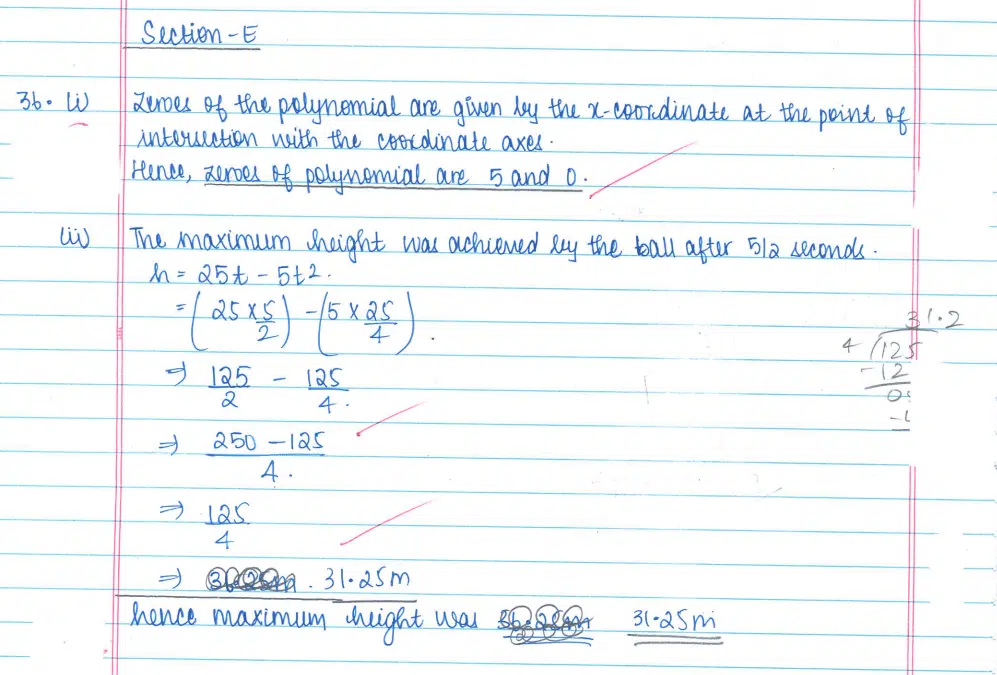 Section-E
36. (i) Zeroes of the polynomial are given by the x-coordinate at the point of
intersection with the coordinate axes.
Hence, zeroes of polynomial are 5 and 0.
(ii) The maximum height was achieved by the ball after 5/2 seconds.
h = 25t - 5t2.
= (25 × 5/2) - (5 × 25/4).
⇒ 125/2 - 125/4.
⇒ 250 - 125/4.
⇒ 125/4
⇒ 31.25m
hence maximum height was 31.25m
31.2
4 ) 125
-12